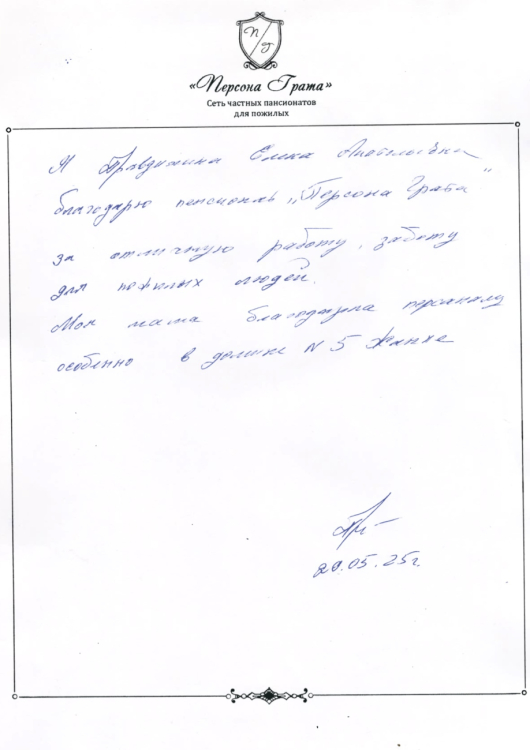 П/Г
«Персона Грата»
Сеть частных пансионатов
для пожилых
Я Елена Анатольевна
благодарю пансионат „Персона Грата"
за отличную работу, заботу
для пожилых людей.
Моя мама благодарна персоналу
особенно в домике N 5
29.05.25г.